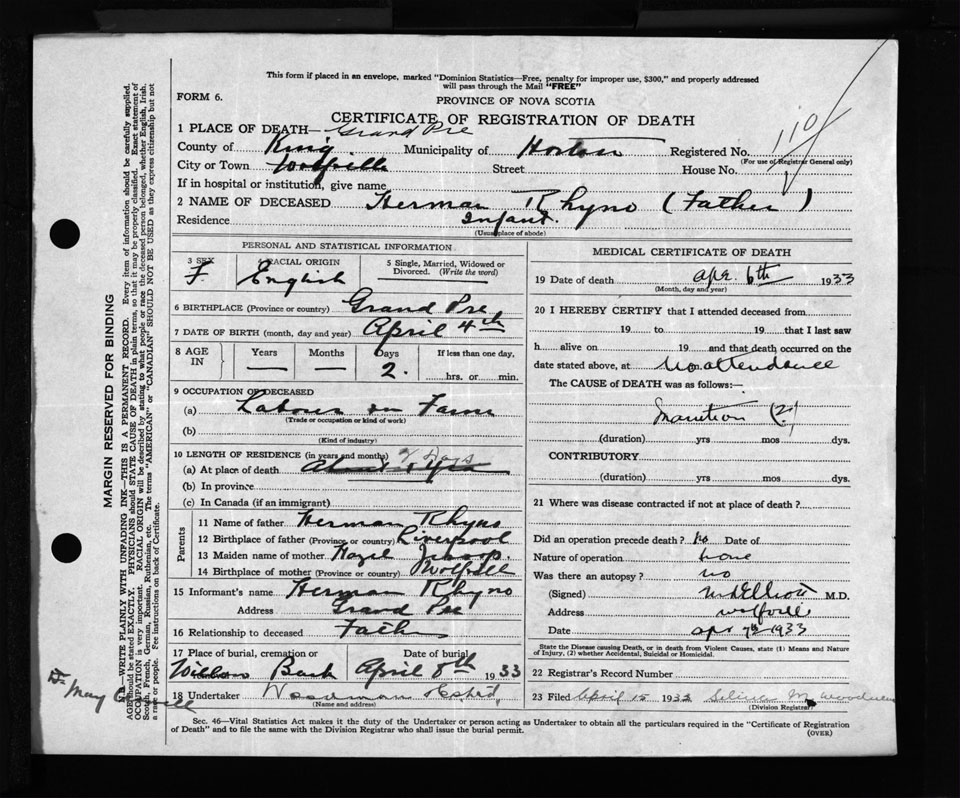 This form if placed in an envelope, marked "Dominion Statistics—Free, penalty for improper use, $300," and properly addressed
will pass through the Mail "FREE"
FORM 6.
PROVINCE OF NOVA SCOTIA
CERTIFICATE OF REGISTRATION OF DEATH
110
1 PLACE OF DEATH— Grand Pre
County of King Municipality of Horton Registered No.
(For use of Registrar General only)
City or Town Wolfville Street House No.
If in hospital or institution, give name
2 NAME OF DECEASED Herman Rhyno (Father)
Residence Infant.
(Usual place of abode)
PERSONAL AND STATISTICAL INFORMATION
3 SEX F. 4 RACIAL ORIGIN English 5 Single, Married, Widowed or Divorced. (Write the word)
6 BIRTHPLACE (Province or country) Grand Pre
7 DATE OF BIRTH (month, day and year) April 4th
8 AGE IN Years — Months — Days 2. If less than one day, hrs. or min.
9 OCCUPATION OF DECEASED
(a) Labour on Farm
(Trade or occupation or kind of work)
(b)
(Kind of industry)
10 LENGTH OF RESIDENCE (in years and months) 2 Days
(a) At place of death
(b) In province
(c) In Canada (if an immigrant)
Parents
11 Name of father Herman Rhyno
12 Birthplace of father (Province or country) Liverpool
13 Maiden name of mother Hazel
14 Birthplace of mother (Province or country) Wolfvill
15 Informant's name Herman Rhyno
Address Grand Pre
16 Relationship to deceased Father
17 Place of burial, cremation or Date of burial
April 8th 1933
18 Undertaker Woodman
(Name and address)
MEDICAL CERTIFICATE OF DEATH
19 Date of death Apr. 6th 1933
(Month, day and year)
20 I HEREBY CERTIFY that I attended deceased from
19 to 19 that I last saw
h alive on 19 and that death occurred on the
date stated above, at No attendance
The CAUSE of DEATH was as follows:—
Inanition (2)
(duration) yrs mos dys.
CONTRIBUTORY
(duration) yrs mos dys.
21 Where was disease contracted if not at place of death?
Did an operation precede death? No Date of
Nature of operation none
Was there an autopsy? no
(Signed) Elliott M.D.
Address Wolfville
Date Apr 7th 1933
State the Disease causing Death, or in death from Violent Causes, state (1) Means and Nature
of Injury, (2) whether Accidental, Suicidal or Homicidal.
22 Registrar's Record Number
23 Filed April 15 1933
(Division Registrar)
Sec. 46—Vital Statistics Act makes it the duty of the Undertaker or person acting as Undertaker to obtain all the particulars required in the "Certificate of Registration
of Death" and to file the same with the Division Registrar who shall issue the burial permit.
(OVER)
MARGIN RESERVED FOR BINDING
N.B.—WRITE PLAINLY WITH UNFADING INK—THIS IS A PERMANENT RECORD. Every item of information should be carefully supplied.
AGE should be stated EXACTLY. PHYSICIANS should STATE CAUSE OF DEATH in plain terms, so that it may be properly classified. Exact statement of
OCCUPATION is very important. RACIAL ORIGIN will be described by stating to what people or race the deceased person belonged, whether English, Irish,
Scotch, French, German, Russian, Ruthenian, etc. The terms "AMERICAN" or "CANADIAN" SHOULD NOT BE USED as they express citizenship but not
a race or people. Fee instructions on back of Certificate.